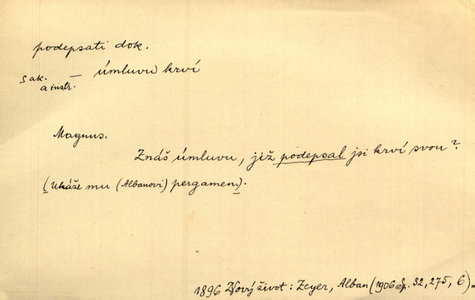 podepsati dok.
s ak. — úmluvu krví
a instr.
Magnus.
Znáš úmluvu, již podepsal jsi krví svou?
(Ukáže mu (Albanovi) pergamen).
1896 Nový život: Zeyer, Alban (1906 Sp. 32, 275, 6).